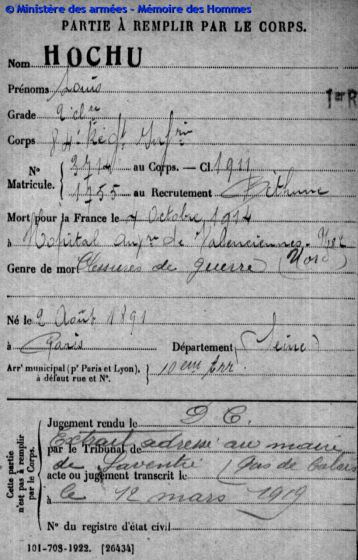 © Ministère des armées - Mémoire des Hommes
PARTIE À REMPLIR PAR LE CORPS.
Nom HOCHU
Prénoms Louis
Grade 2e cl
Corps 84e Régt Infrie
1er R
N° 3714 au Corps. — Cl. 1911
Matricule. 1755 au Recrutement Béthune
Mort pour la France le 7 Octobre 1914
à Hôpital de Valenciennes. (Nord)
Genre de mort Blessures de guerre
Né le 2 Août 1891
à Paris Département (Seine)
Arrt municipal (pr Paris et Lyon), à défaut rue et N°. 10ème Arr.
Cette partie n'est pas à remplir par le Corps.
Jugement rendu le D C.
par le Tribunal de Extrait adressé au maire
de Laventie (Pas de Calais
acte ou jugement transcrit le
à le 12 mars 1919
N° du registre d'état civil
101-708-1922. [26434]